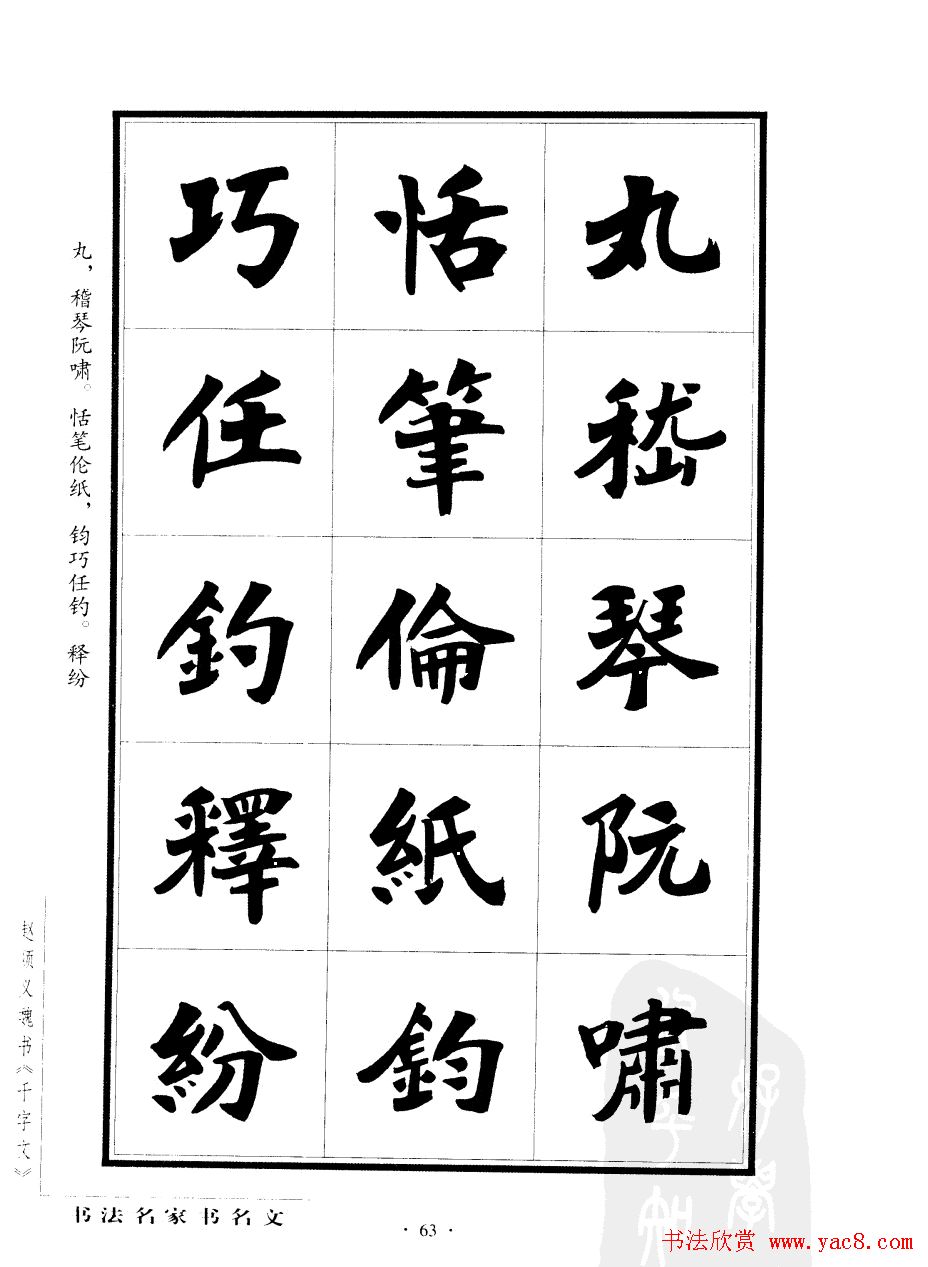 丸嵇琴阮嘯
恬筆倫紙鈞
巧任釣釋紛
丸，稽琴阮啸。恬笔伦纸，钧巧任钓。释纷
书《千字文》
书法名家书名文
· 63 ·
书法欣赏 www.yac8.com